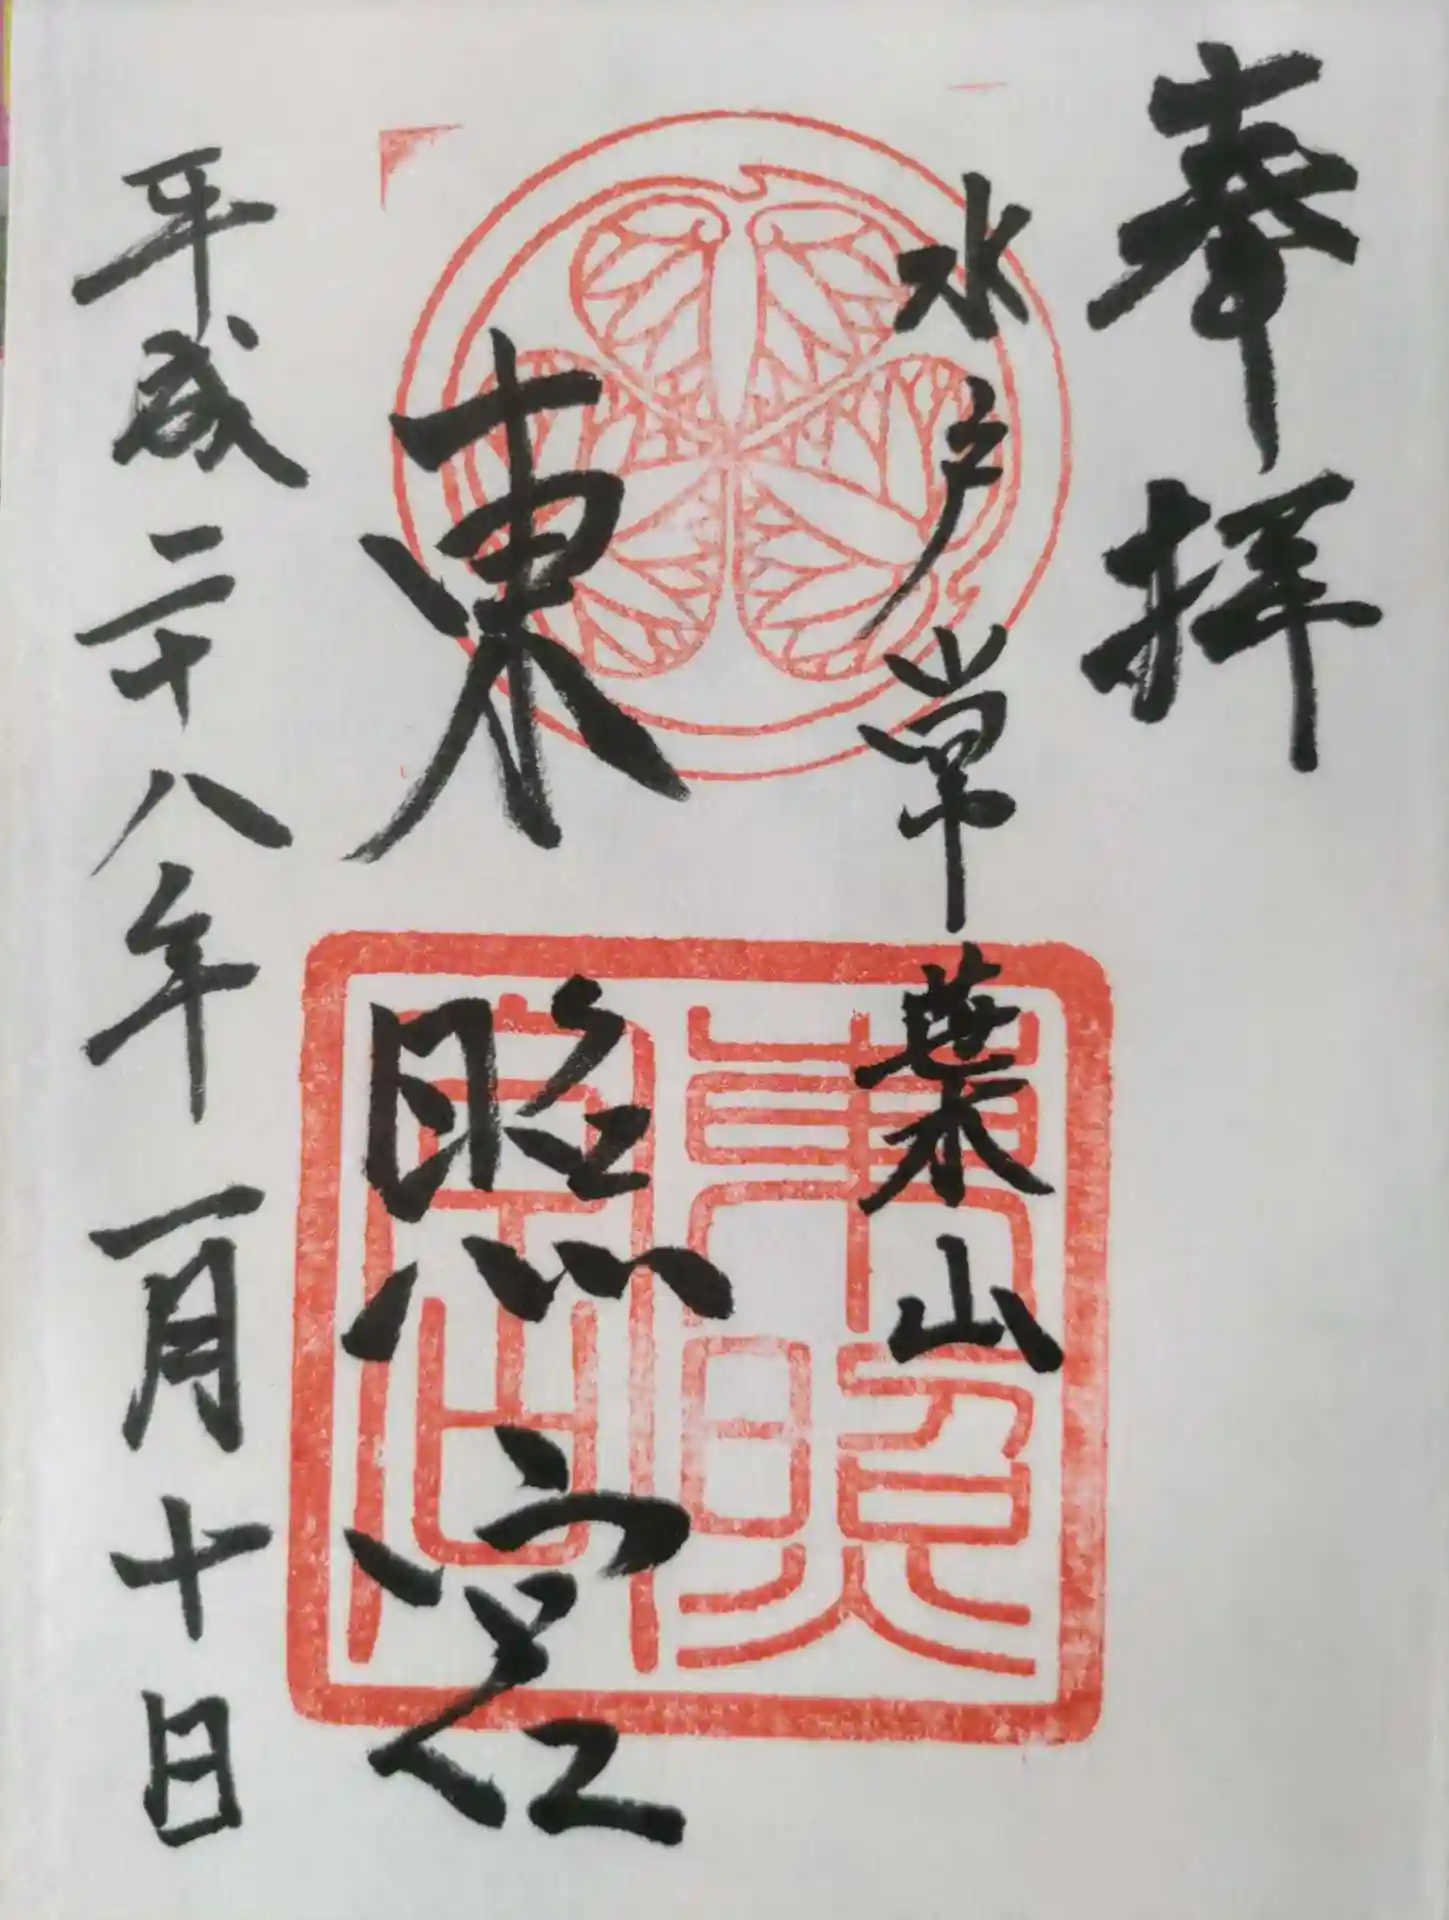 奉拝
水戸常葉山
東照宮
平成二十八年一月十日
東照
宮印